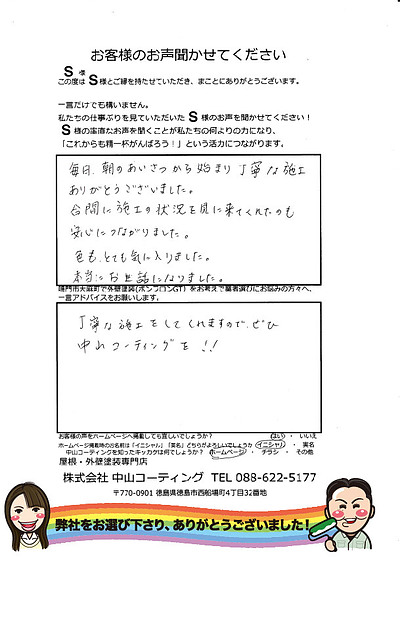 お客様のお声聞かせてください
S 様
この度は S様とご縁を持たせていただき、まことにありがとうございます。
一言だけでも構いません。
私たちの仕事ぶりを見ていただいた S 様のお声を聞かせてください！
S 様の率直なお声を聞くことが私たちの何よりの力になり、
「これからも精一杯がんばろう！」という活力につながります。
毎日、朝のあいさつから始まり丁寧な施工
ありがとうございました。
合間に施工の状況を見に来てくれたのも
安心につながりました。
色も、とても気に入りました。
本当にお世話になりました。
鳴門市大麻町で外壁塗装(ボンフロンGT)をお考えで業者選びにお悩みの方々へ、
一言アドバイスをお願いします。
丁寧な施工をしてくれますので、ぜひ
中山コーティングを!!
お客様の声をホームページへ掲載しても宜しいでしょうか？ はい ・ いいえ
ホームページ掲載時のお名前は「イニシャル」「実名」どちらがよろしいでしょうか イニシャル ・ 実名
中山コーティングを知ったキッカケは何でしょうか？ ホームページ ・ チラシ ・ その他
屋根・外壁塗装専門店
株式会社 中山コーティング TEL 088-622-5177
〒770-0901 徳島県徳島市西船場町4丁目32番地
弊社をお選び下さり、ありがとうございました！